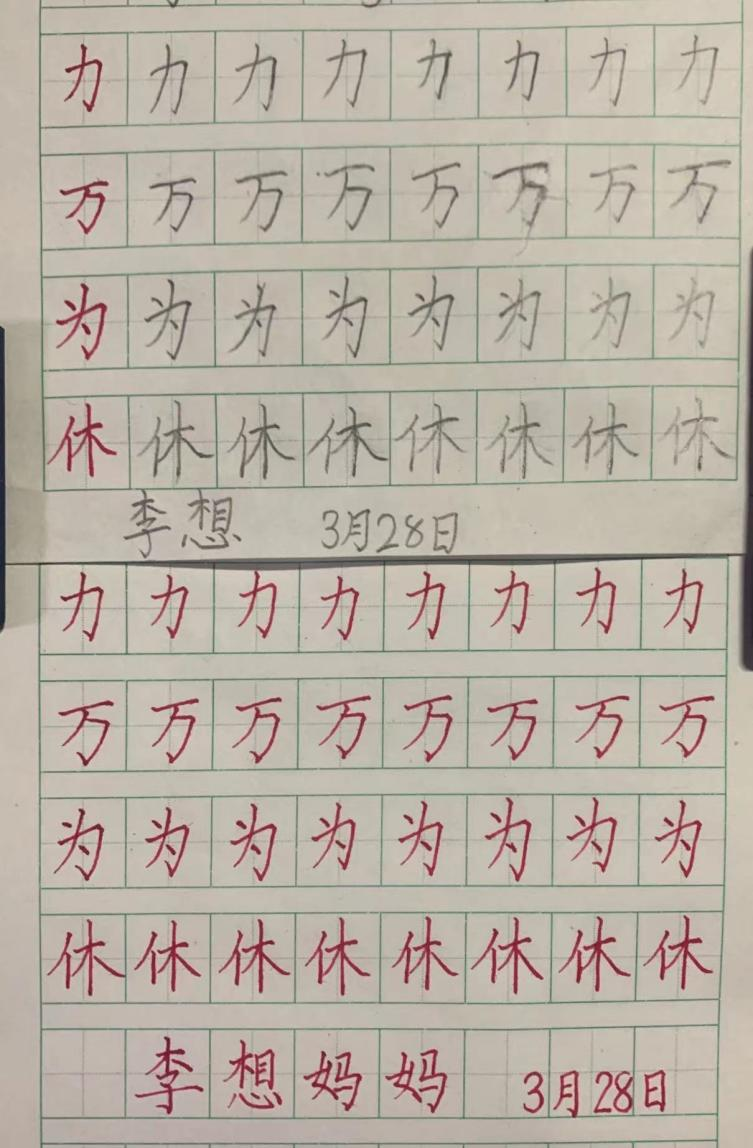 力力力力力力力力
万万万万万万万万
为为为为为为为为
休休休休休休休休
李想 3月28日
力力力力力力力力
万万万万万万万万
为为为为为为为为
休休休休休休休休
李想妈妈 3月28日